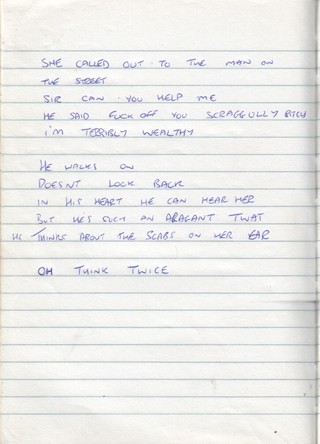 SHE CALLED OUT TO THE MAN ON
THE STREET
SIR CAN YOU HELP ME
HE SAID FUCK OFF YOU SCRAGGULLY BITCH
I'M TERRIBLY WEALTHY
HE WALKS ON
DOESNT LOOK BACK
IN HIS HEART HE CAN HEAR HER
BUT HES SUCH AN ARAGANT TWAT
HE THINKS ABOUT THE SCABS ON HER EAR
OH THINK TWICE